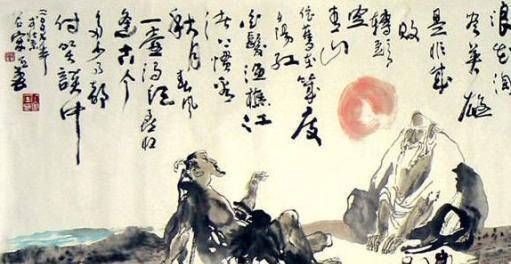 浪花淘
尽英雄
是非成
敗
轉頭
空
青山
依舊在幾度
夕陽紅
白髮漁樵江
渚上慣看
秋月春風
一壺濁酒喜相
逢古今
多少事都
付笑談中